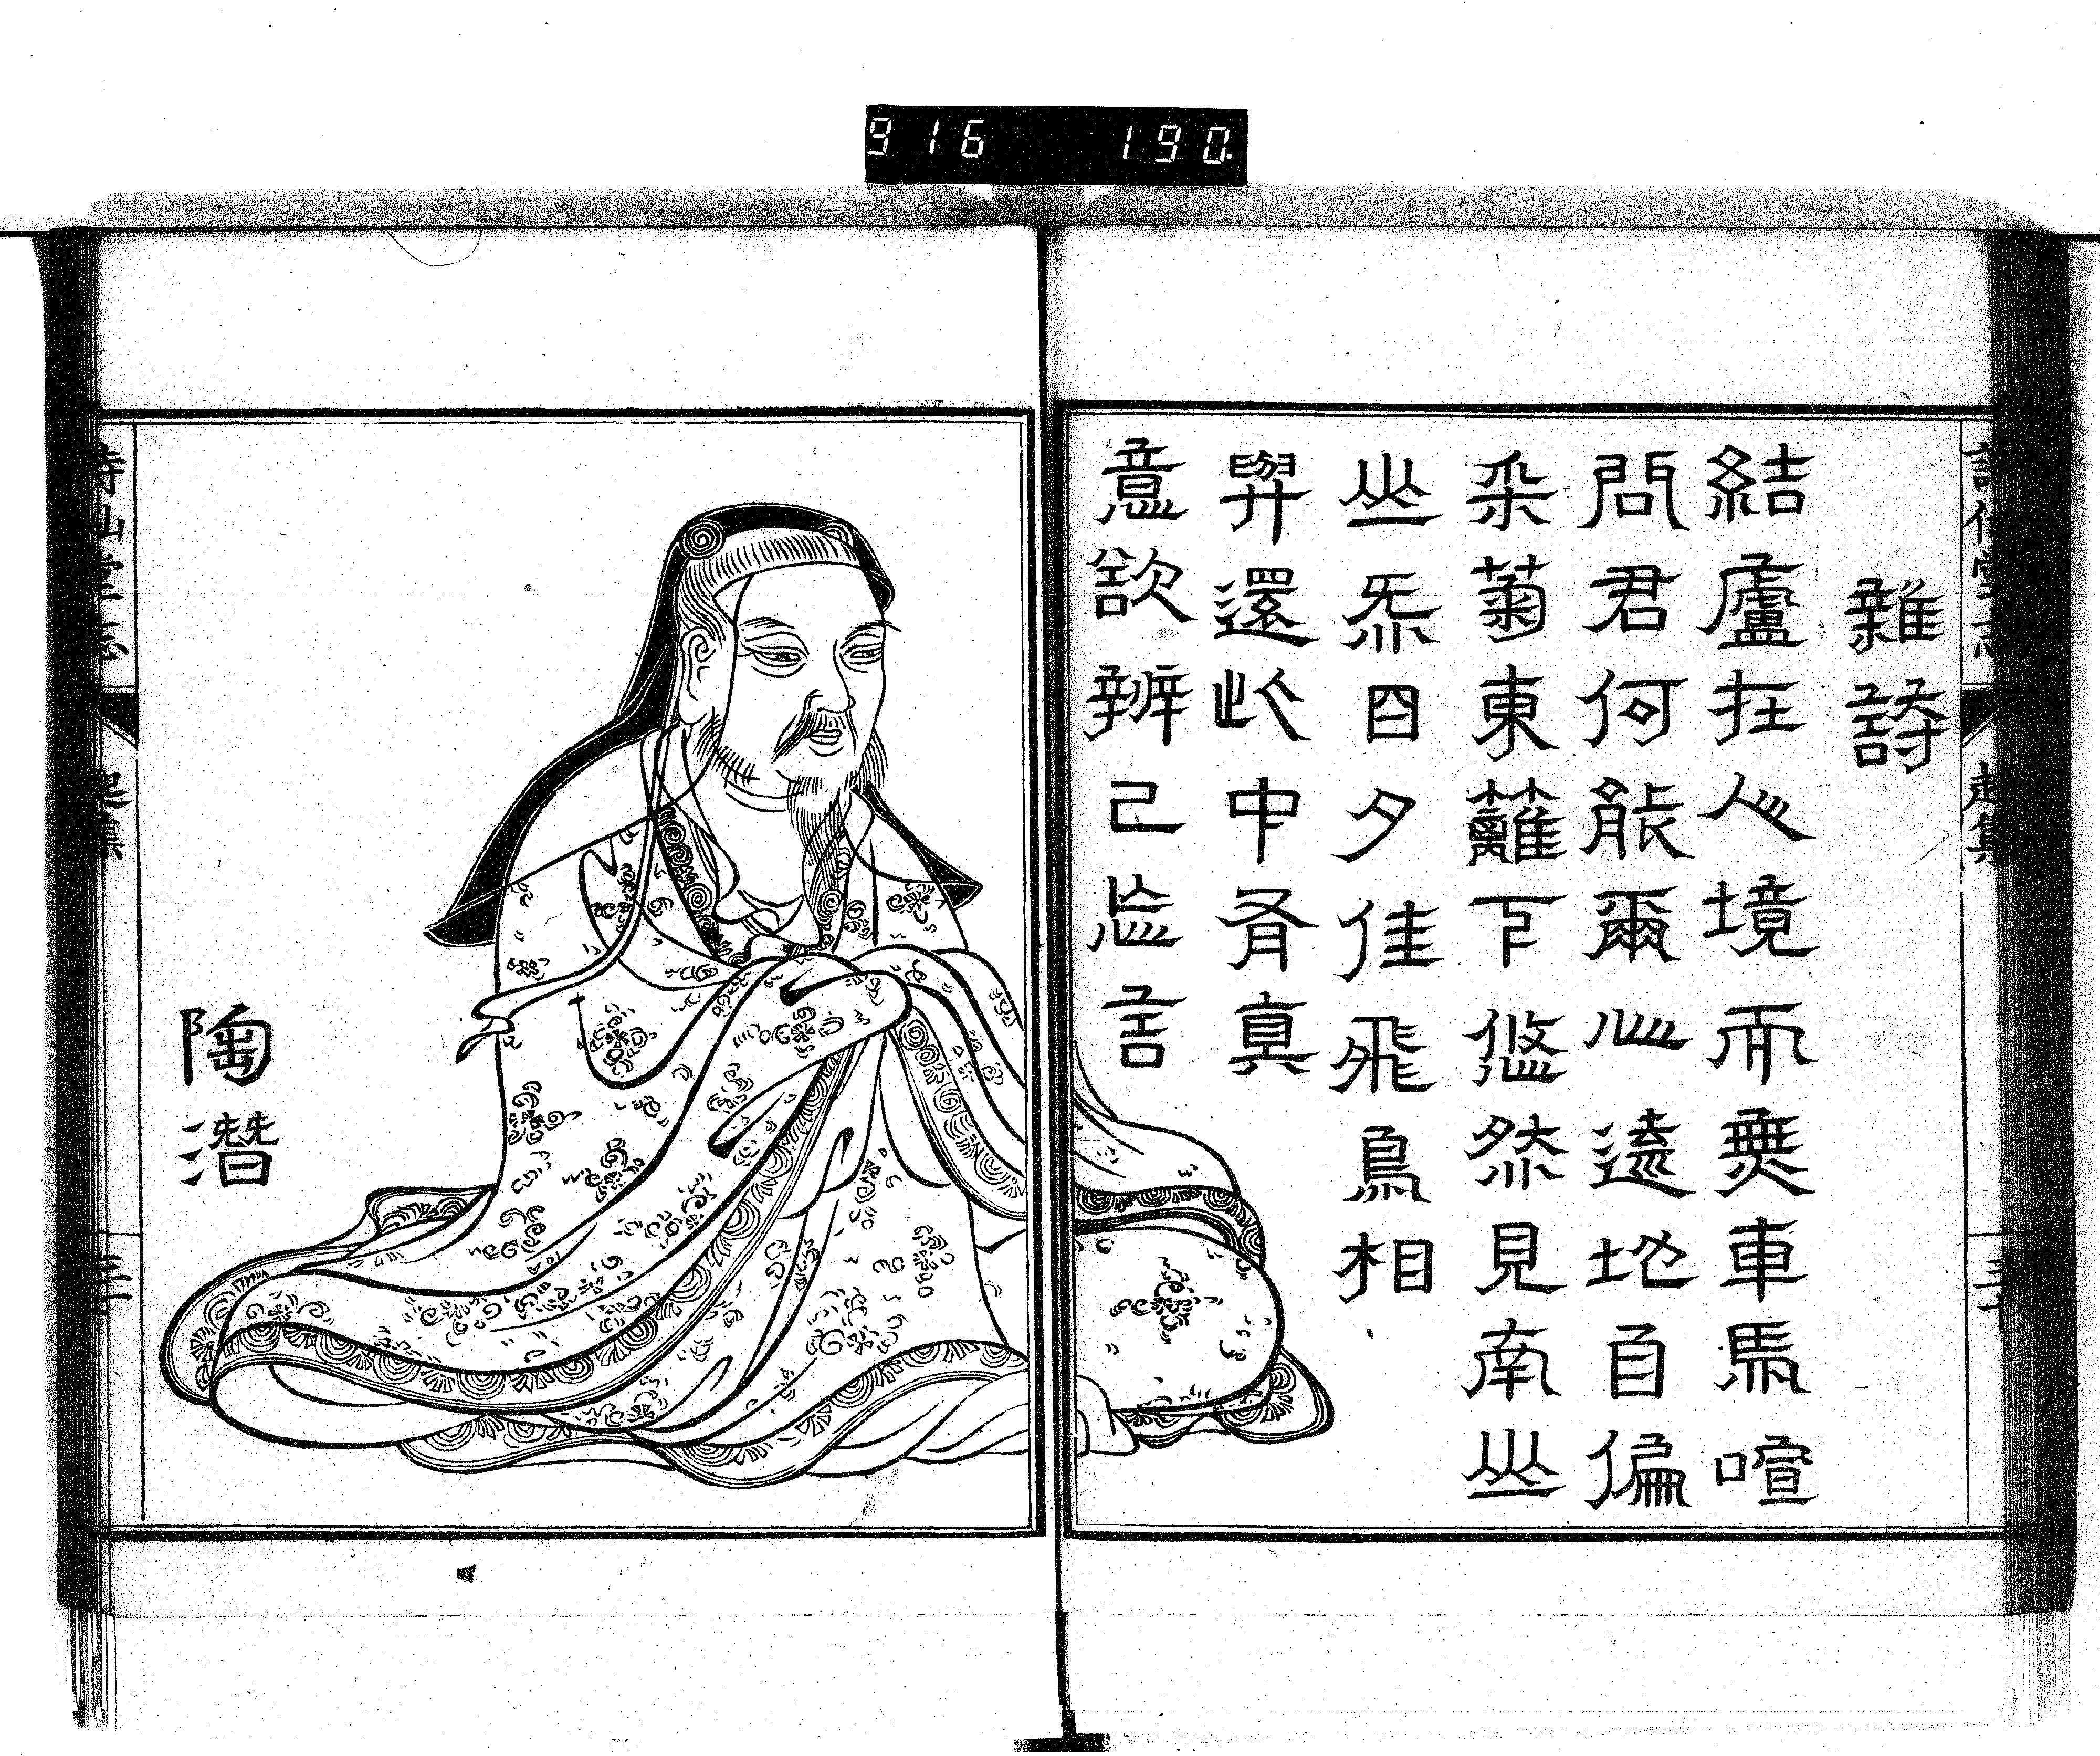 916 190.
詩仙堂志 起集
雜詩
結廬在人境而無車馬喧
問君何能爾心遠地自偏
采菊東籬下悠然見南山
山炁日夕佳飛鳥相
與還此中有真
意欲辨己忘言
陶潛
詩仙堂志 起集